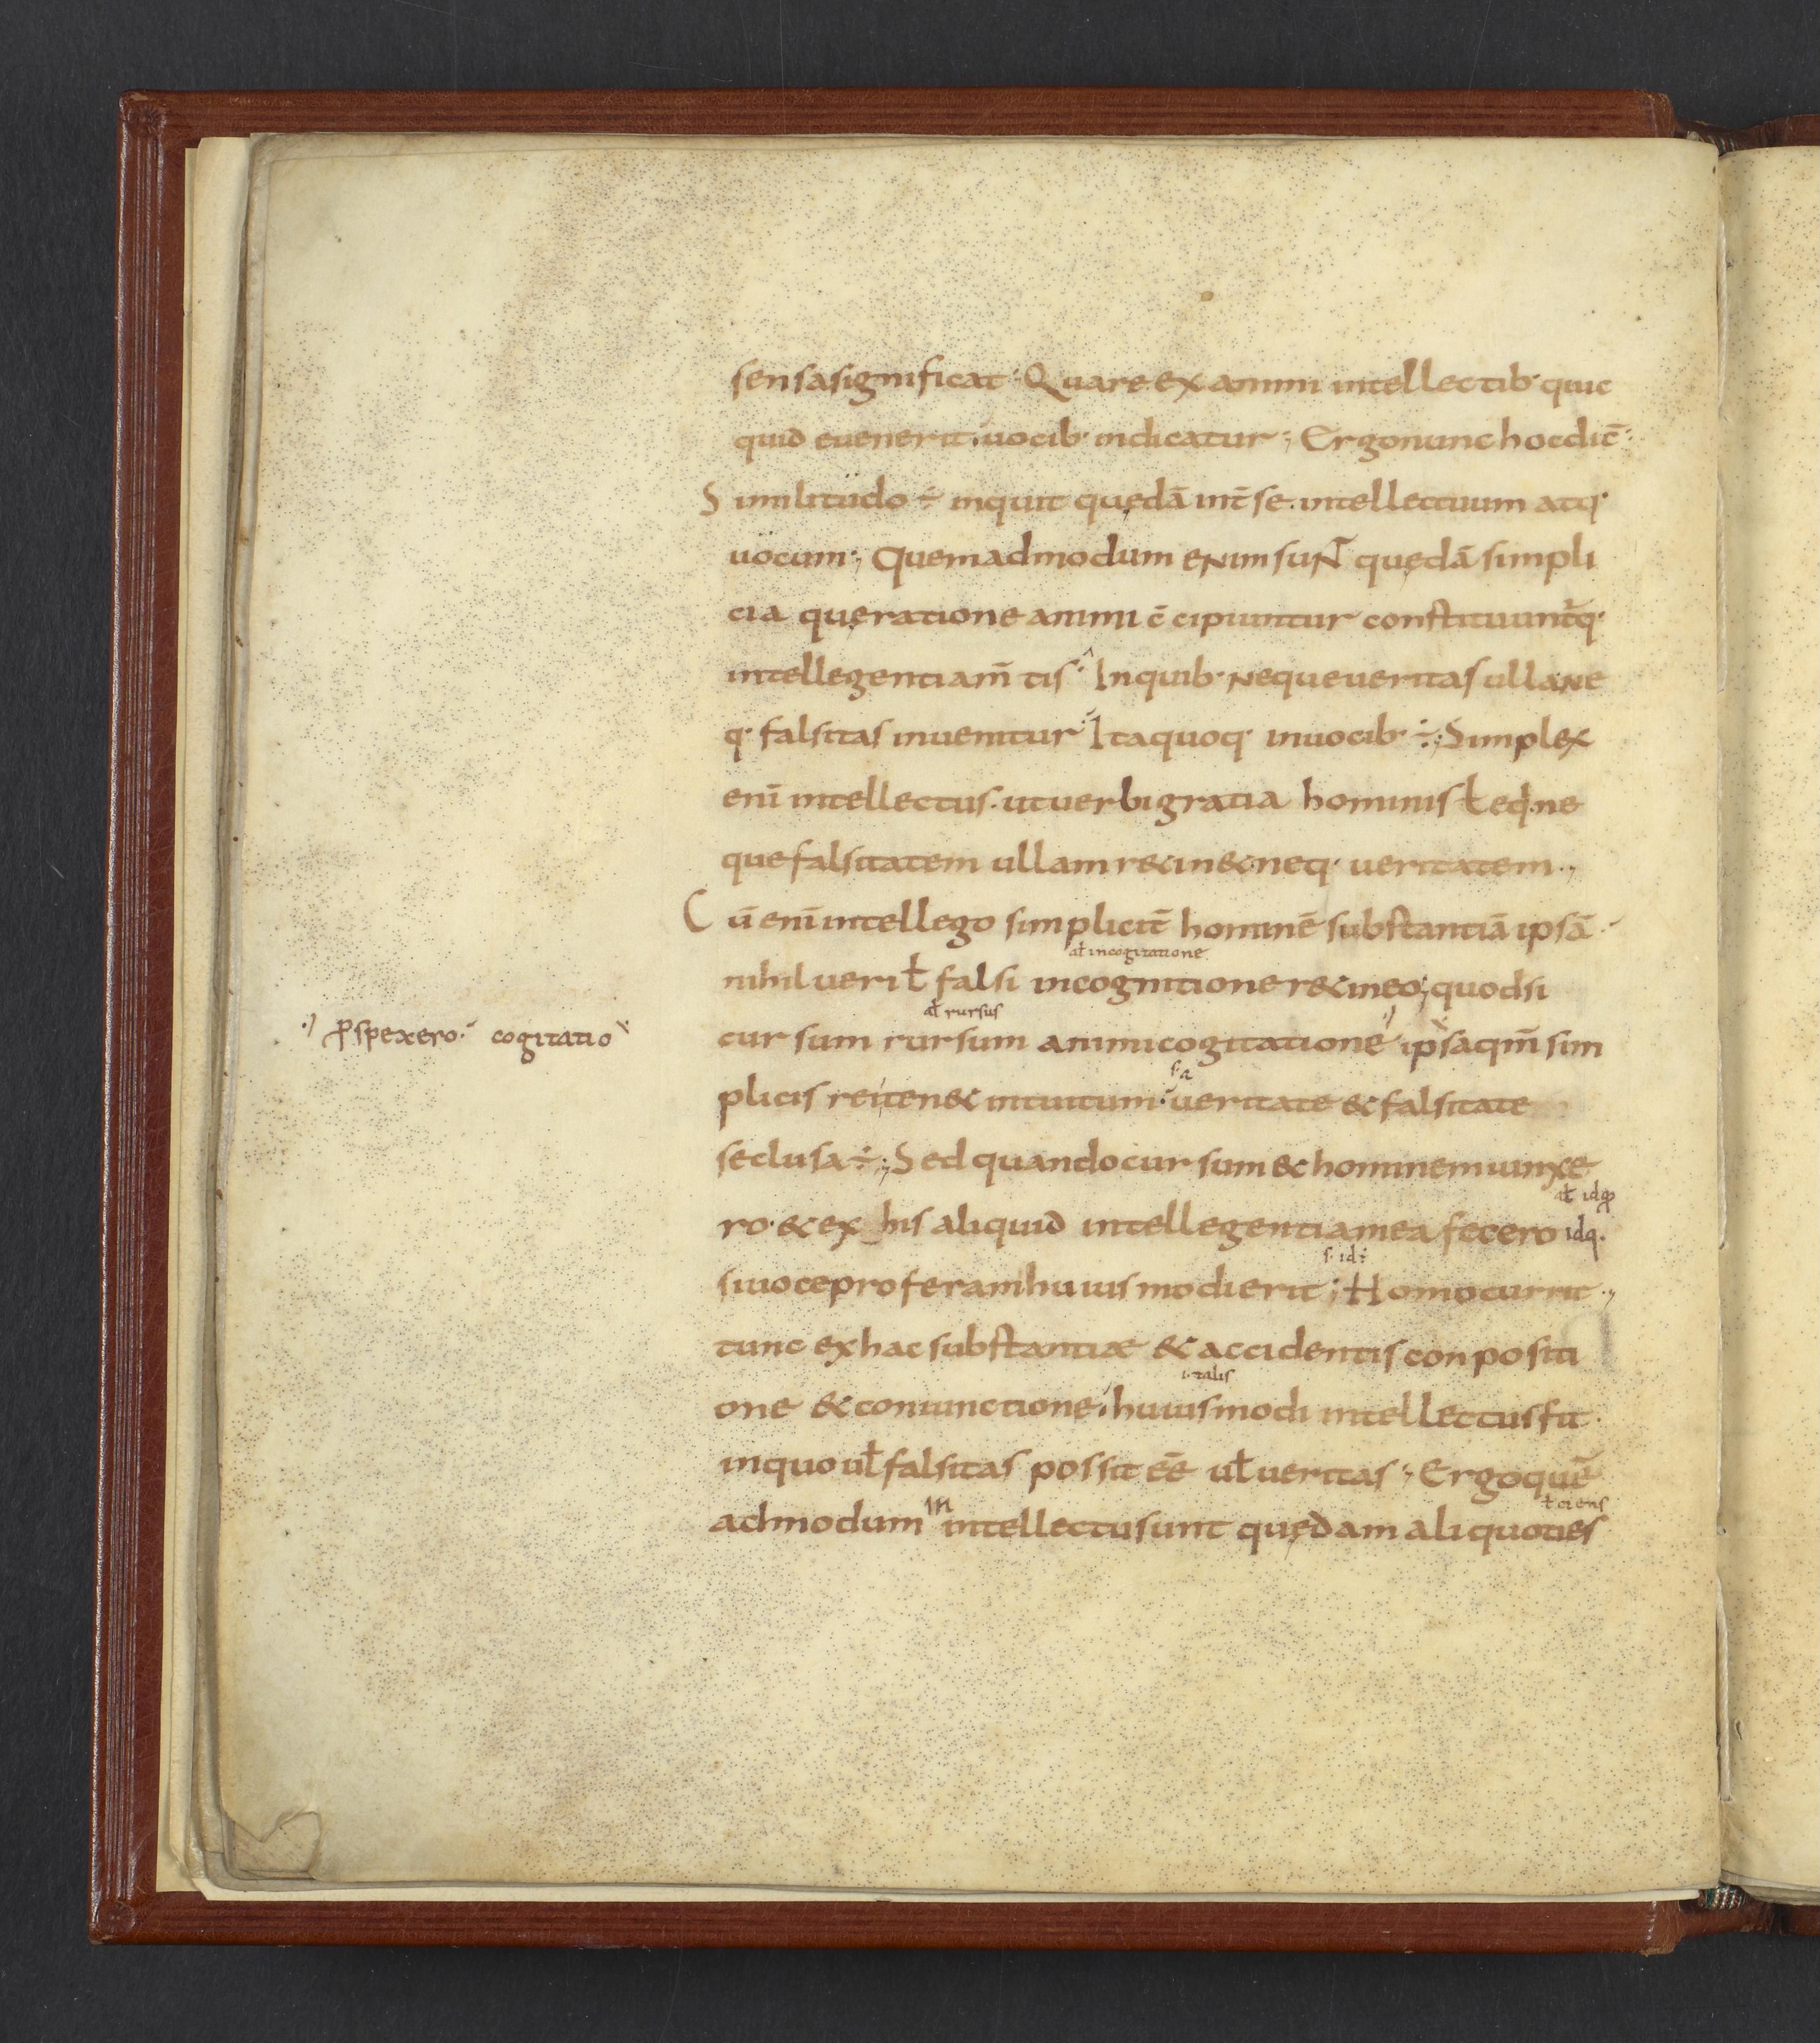 sensa significat· Quare ex animi intellectib· quic
quid euenerit, uocib· indicatur; Ergo nunc hoc dic̄:
Similitudo ÷ inquit quędā int̄ se· intellectuum atq·
uocum; Quemadmodum enim sunT̄ quędā simpli
cia quę ratione animi c̄cipiuntur constituunt̄q·
intellegentia m̄tis· In quib· neque ueritas ulla ne
q· falsitas inuenitur· Ita quoq· in uocib· ÷; Simplex
eni̅ intellectus· ut uerbi gratia hominis ł eq̇· ne
que falsitatem ullam r&in& neq· ueritatem·,
Cū eni̅ intellego simplicit̄ hominē substantiā ipsā·
at incogitatione
nihil ueri ł falsi in cognitione r&ineo; quodsi
at rursus
·) P̄spexero· cogitatio
cursum rursum animi cogitatione ipsa qm̄ sim
s· a
plicis rei ten& intuitum· ueritate & falsitate
seclusa ÷; Sed quando cursum & hominem iunxe
at idqꝫ
ro· & ex his aliquid intellegentia mea fecero idq·
s· id÷
si uoce proferam huiusmodi erit; Homo currit·,
tunc ex hac substantiæ & accidentis conpositi
i· talis
one & coniunctione, huiusmodi intellectus fit·
in quo uł falsitas possit ēē uł ueritas; Ergo quē
ł ciens
in
admodum intellectu sunt quędam aliquoties